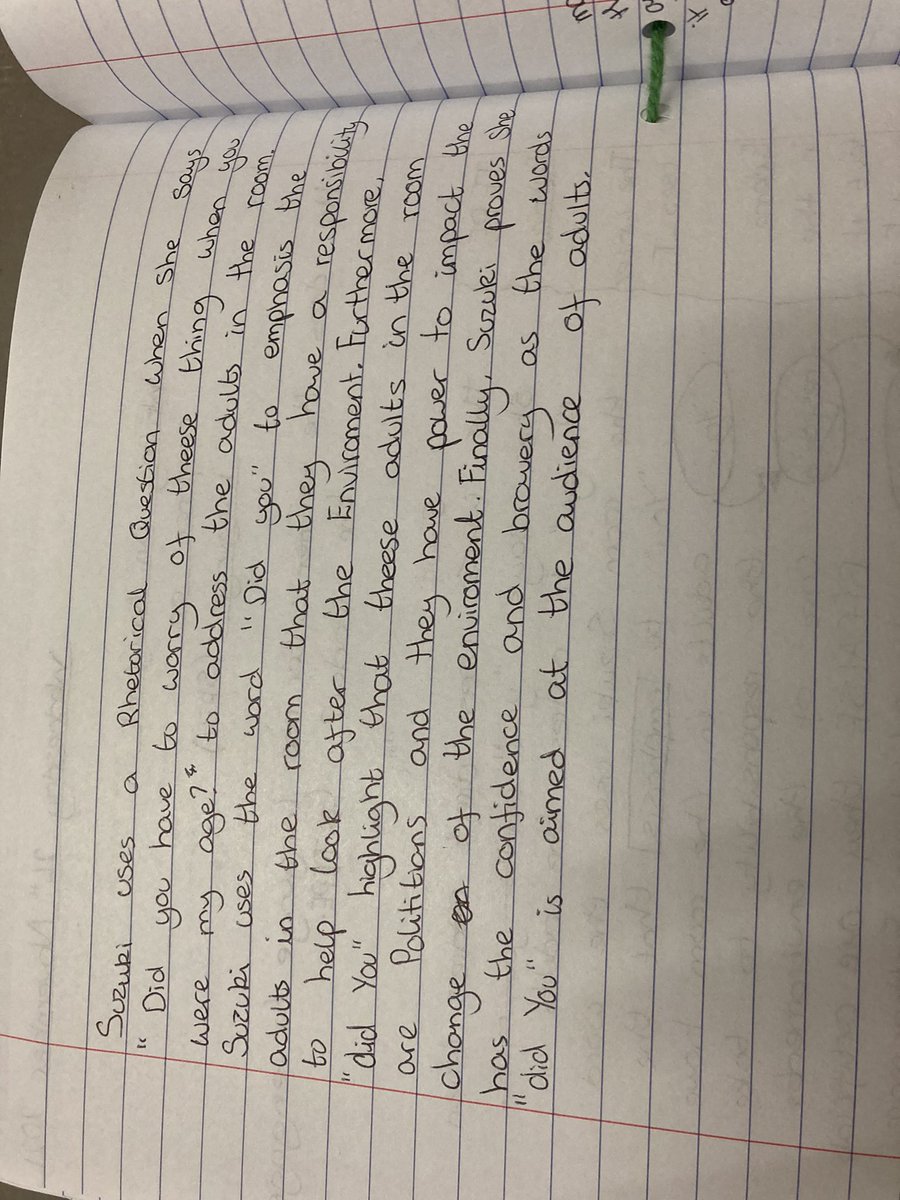 Suzuki uses a Rhetorical Question when she says
"Did you have to worry of theese thing when you
were my age?" to address the adults in the room.
Suzuki uses the word "Did you" to emphasis the
adults in the room that they have a responsibility
to help look after the Enviroment. Furthermore,
"did You" highlight that theese adults in the room
are Polititions and they have power to impact the
change of the enviroment. Finally, Suzuki proves she
has the confidence and bravery as the words
"did You" is aimed at the audience of adults.